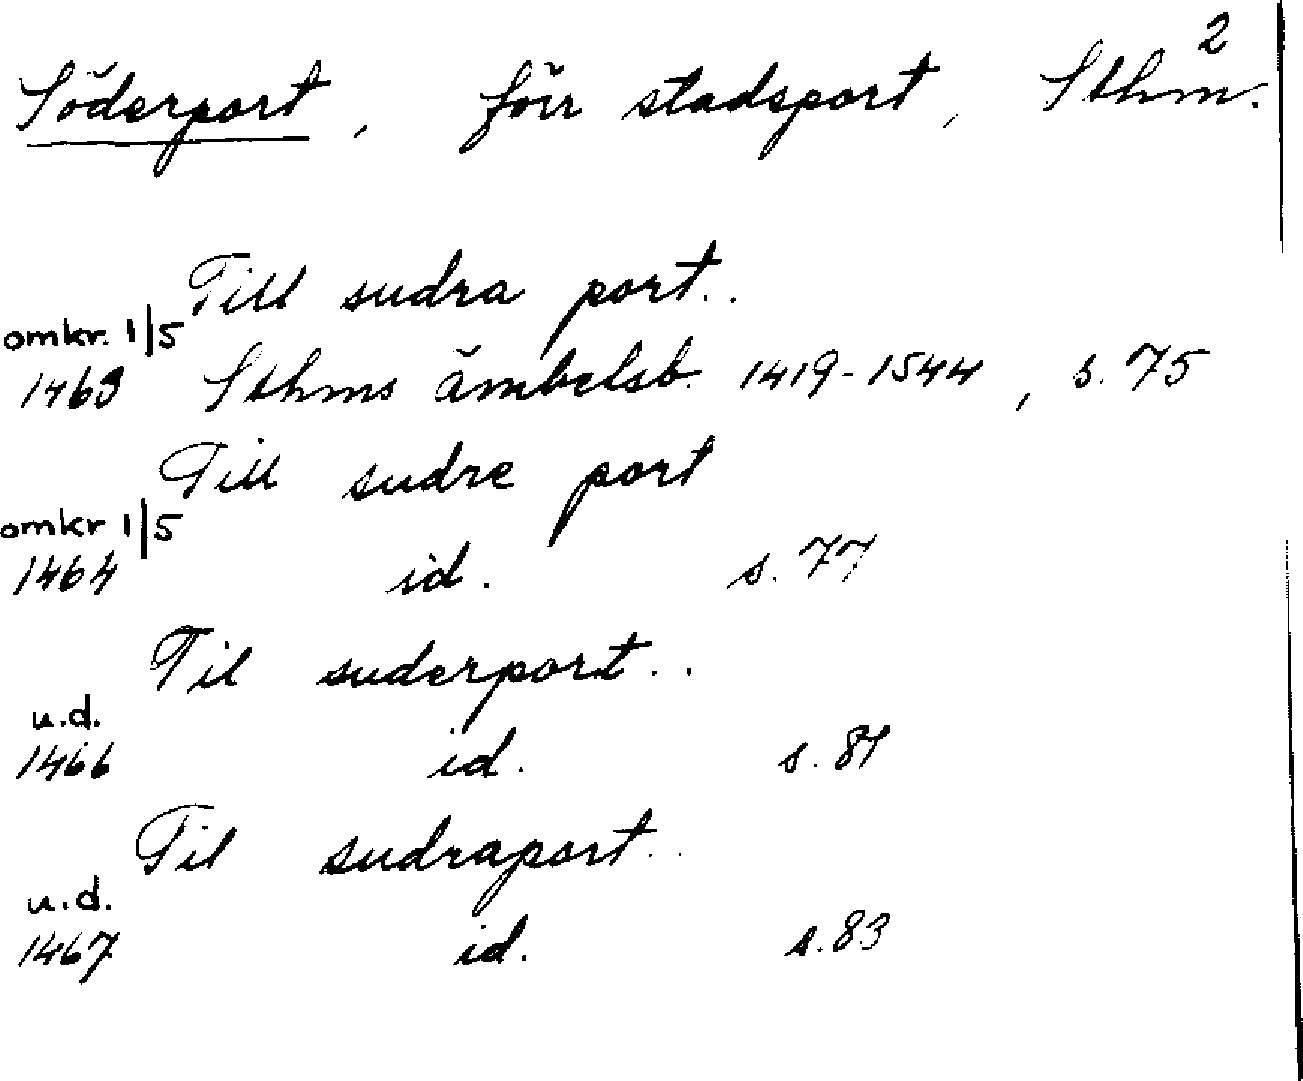 2
Söderport, förr stadsport, Sthm.
Till sudra port..
omkr. 1/5
1463 Sthms ämbetsb. 1419-1544, s. 75
Till sudre port
omkr 1/5
1464 id. s. 77
Til suderport..
u.d.
1466 id. s. 81
Til sudraport..
u.d.
1467 id. s. 83